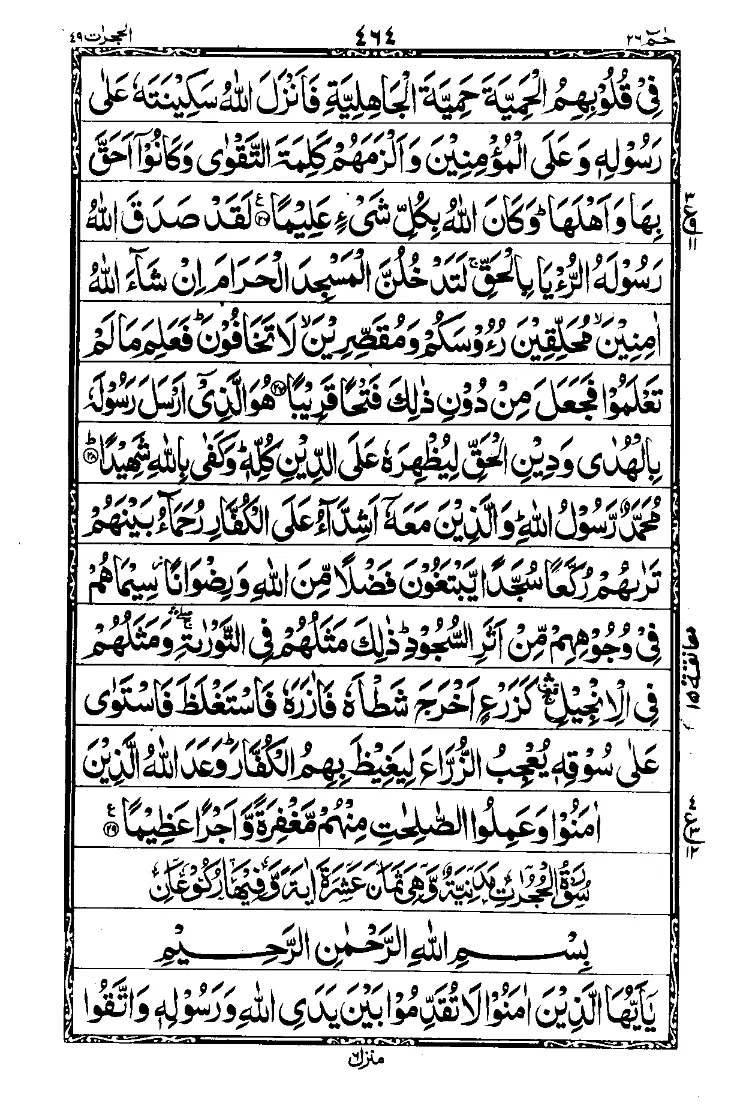 حٰمٓ ٢٦ ٤٦٤ الحجرات ٤٩
فِیْ قُلُوْبِهِمُ الْحَمِیَّةَ حَمِیَّةَ الْجَاهِلِیَّةِ فَاَنْزَلَ اللّٰهُ سَكِیْنَتَهٗ عَلٰی
رَسُوْلِهٖ وَعَلَی الْمُؤْمِنِیْنَ وَاَلْزَمَهُمْ كَلِمَةَ التَّقْوٰی وَكَانُوْۤا اَحَقَّ
بِهَا وَاَهْلَهَا ؕ وَكَانَ اللّٰهُ بِكُلِّ شَیْءٍ عَلِیْمًا ﴿٢٦﴾ ع لَقَدْ صَدَقَ اللّٰهُ
رَسُوْلَهُ الرُّءْیَا بِالْحَقِّ ۚ لَتَدْخُلُنَّ الْمَسْجِدَ الْحَرَامَ اِنْ شَآءَ اللّٰهُ
اٰمِنِیْنَ ۙ مُحَلِّقِیْنَ رُءُوْسَكُمْ وَمُقَصِّرِیْنَ ۙ لَا تَخَافُوْنَ ؕ فَعَلِمَ مَا لَمْ
تَعْلَمُوْا فَجَعَلَ مِنْ دُوْنِ ذٰلِكَ فَتْحًا قَرِیْبًا ﴿٢٧﴾ هُوَ الَّذِیْۤ اَرْسَلَ رَسُوْلَهٗ
بِالْهُدٰی وَدِیْنِ الْحَقِّ لِیُظْهِرَهٗ عَلَی الدِّیْنِ كُلِّهٖ ؕ وَكَفٰی بِاللّٰهِ شَهِیْدًا ﴿٢٨﴾ؕ
مُحَمَّدٌ رَّسُوْلُ اللّٰهِ ؕ وَالَّذِیْنَ مَعَهٗۤ اَشِدَّآءُ عَلَی الْكُفَّارِ رُحَمَآءُ بَیْنَهُمْ
تَرٰىهُمْ رُكَّعًا سُجَّدًا یَّبْتَغُوْنَ فَضْلًا مِّنَ اللّٰهِ وَرِضْوَانًا ؗ سِیْمَاهُمْ
فِیْ وُجُوْهِهِمْ مِّنْ اَثَرِ السُّجُوْدِ ؕ ذٰلِكَ مَثَلُهُمْ فِی التَّوْرٰىةِ ۛۖۚ وَمَثَلُهُمْ
فِی الْاِنْجِیْلِ ۛ۫ۚ كَزَرْعٍ اَخْرَجَ شَطْاَهٗ فَاٰزَرَهٗ فَاسْتَغْلَظَ فَاسْتَوٰی
عَلٰی سُوْقِهٖ یُعْجِبُ الزُّرَّاعَ لِیَغِیْظَ بِهِمُ الْكُفَّارَ ؕ وَعَدَ اللّٰهُ الَّذِیْنَ
اٰمَنُوْا وَعَمِلُوا الصّٰلِحٰتِ مِنْهُمْ مَّغْفِرَةً وَّاَجْرًا عَظِیْمًا ﴿٢٩﴾ ع
سُوْرَةُ الْحُجُرٰتِ مَدَنِیَّةٌ وَّهِیَ ثَمَانَ عَشْرَةَ اٰیَةً وَّفِیْهَا رُكُوْعَانِ
بِسْمِ اللّٰهِ الرَّحْمٰنِ الرَّحِیْمِ
یٰۤاَیُّهَا الَّذِیْنَ اٰمَنُوْا لَا تُقَدِّمُوْا بَیْنَ یَدَیِ اللّٰهِ وَرَسُوْلِهٖ وَاتَّقُوا
منزل ٦
معانقة ١٥